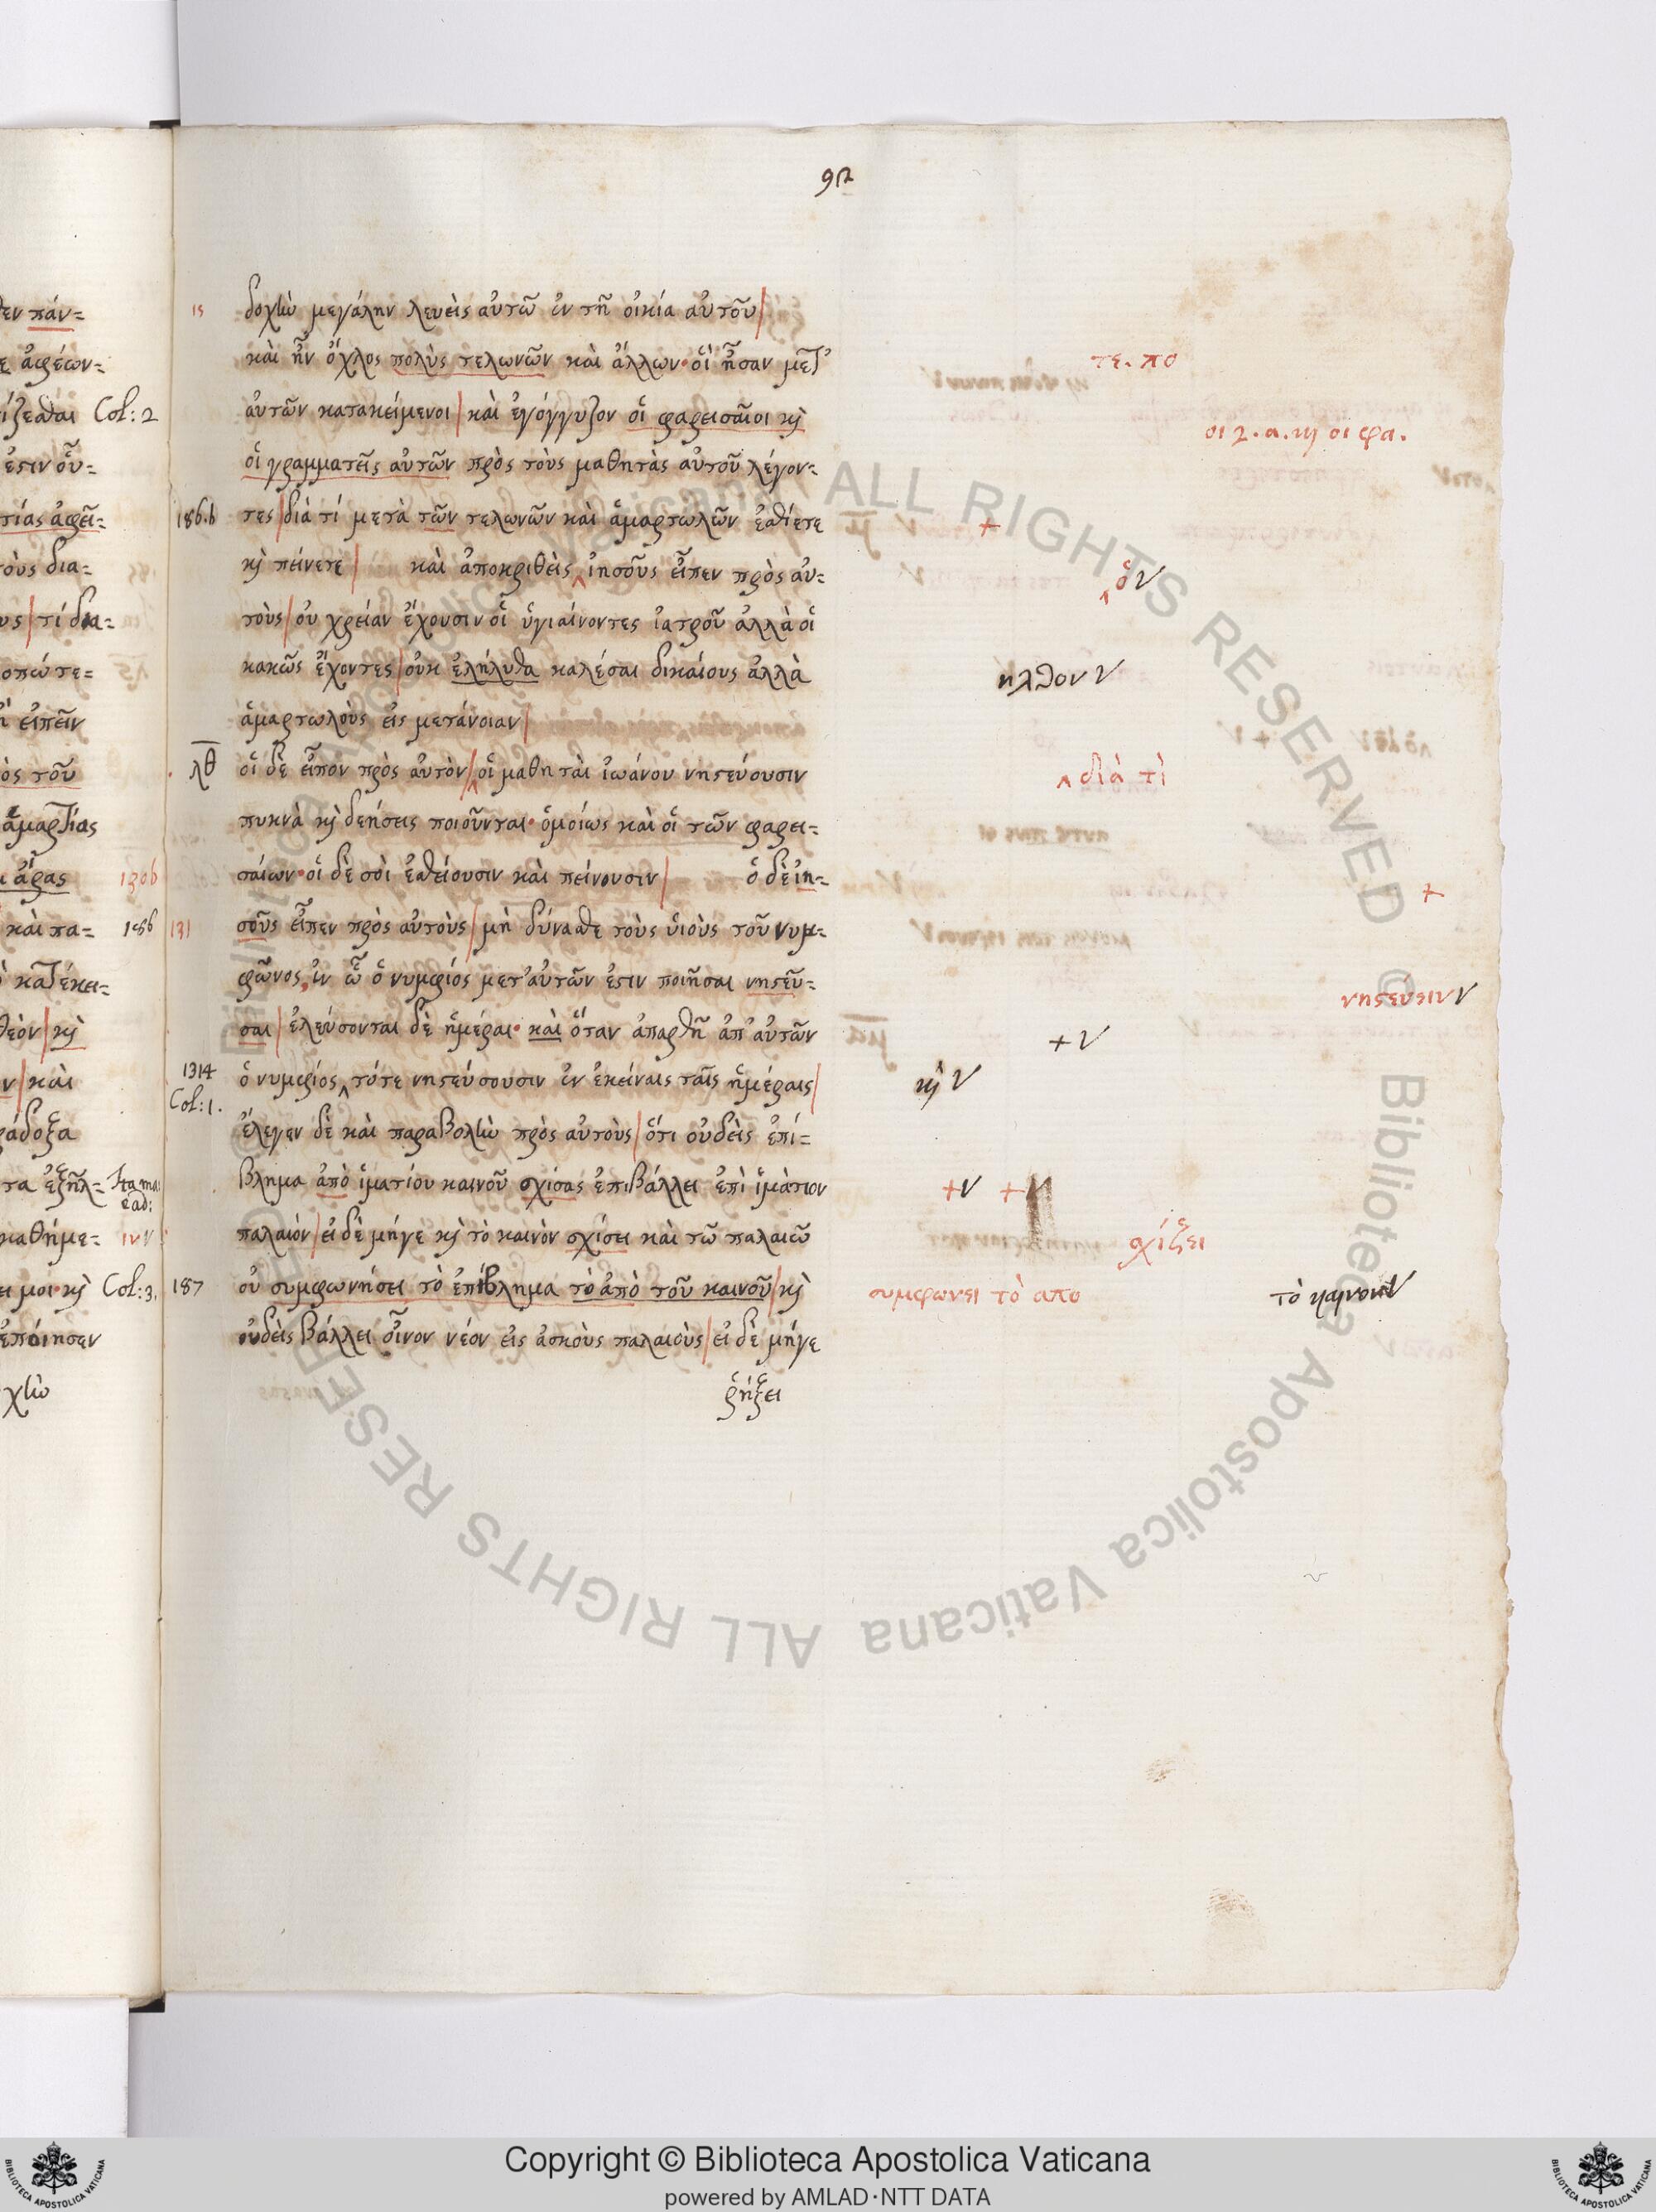 92
δοχὴν μεγάλην λευεὶς αὐτῶ ἐν τῆ οἰκία αὐτοῦ
καὶ ἦν ὄχλος πολὺς τελωνῶν καὶ ἄλλων· οἳ ἦσαν μετ'
τε. πο
αὐτῶν κατακείμενοι καὶ ἐγόγγυζον οἱ φαρεισαῖοι κὶ
οι γ. α. κὶ οι φα.
οἱ γραμματεῖς αὐτῶν πρὸς τοὺς μαθητὰς αὐτοῦ λέγον=
186.b τες διὰ τί μετὰ τῶν τελωνῶν καὶ ἁμαρτωλῶν ἐσθίετε +
κὶ πείνετε καὶ ἀποκριθεὶς ‸ ἰησοῦς εἶπεν πρὸς αὐ=
‸ ὁ ν
τοὺς οὐ χρείαν ἔχουσιν οἱ ὑγιαίνοντες ἰατροῦ ἀλλὰ οἱ
κακῶς ἔχοντες οὐκ ἐλήλυθα καλέσαι δικαίους ἀλλὰ
ηλθον ν
ἁμαρτωλοὺς εἰς μετάνοιαν
λθ οἱ δὲ εἶπον πρὸς αὐτὸν ‸ οἱ μαθηταὶ ἰωάνου νηστεύουσιν
‸ διὰ τὶ
πυκνὰ κὶ δεήσεις ποιοῦνται· ὁμοίως καὶ οἱ τῶν φαρει=
σαίων· οἱ δὲ σοὶ ἐσθίουσιν καὶ πείνουσιν ὁ δὲ ἰη= +
131 σοῦς εἶπεν πρὸς αὐτοὺς μὴ δύνασθε τοὺς υἱοὺς τοῦ νυμ=
φῶνος, ἐν ὧ ὁ νυμφίος μετ' αὐτῶν ἐστιν ποιῆσαι νηστεῦ=
νηστεύειν ν
σαι ἐλεύσονται δὲ ἡμέραι· καὶ ὅταν ἀπαρθῆ ἀπ' αὐτῶν
+ ν
1314 Col: 1. ὁ νυμφίος ‸ τότε νηστεύσουσιν ἐν ἐκείναις ταῖς ἡμέραις
κὶ ν
ἔλεγεν δὲ καὶ παραβολὴν πρὸς αὐτοὺς ὅτι οὐδεὶς ἐπί=
βλημα ἀπὸ ἱματίου καινοῦ σχίσας ἐπιβάλλει ἐπὶ ἱμάτιον
+ν +
παλαιόν εἰ δὲ μήγε κὶ τὸ καινὸν σχίσει καὶ τῶ παλαιῶ
σχίζει
187 οὐ συμφωνήσει τὸ ἐπίβλημα τὸ ἀπὸ τοῦ καινοῦ κὶ
συμφωνει τὸ απο
τὸ καινον ν
οὐδεὶς βάλλει οἶνον νέον εἰς ἀσκοὺς παλαιοὺς εἰ δὲ μήγε
ῥήξει
εν πάν=
ἀφέων=
Col: 2
ἐστιν οὗ=
τίας ἀφεῖ=
τοὺς δια=
τί δια=
εἰπεῖν
τοῦ
ἁμαρτίας
ἄρας 130b
καὶ πα=
θεὸν κὶ
καὶ
καθήμε=
μοι· κὶ Col: 3.
ἐποίησεν
χὴν
Copyright © Biblioteca Apostolica Vaticana
powered by AMLAD·NTT DATA